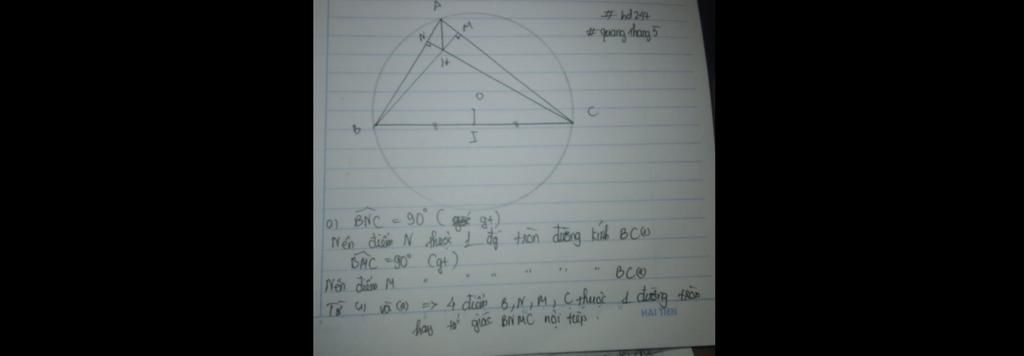 # hd247
# quang thang 5
A
N
M
H
O
B
C
I
a) BNC = 90° ( gt)
Nên điểm N thuộc 1 đg tròn đường kính BC (1)
BMC = 90° (gt)
Nên điểm M " " " " " " BC (2)
Từ (1) và (2) => 4 điểm B, N, M, C thuộc 1 đường tròn
hay tứ giác BNMC nội tiếp.
HẢI TIẾN